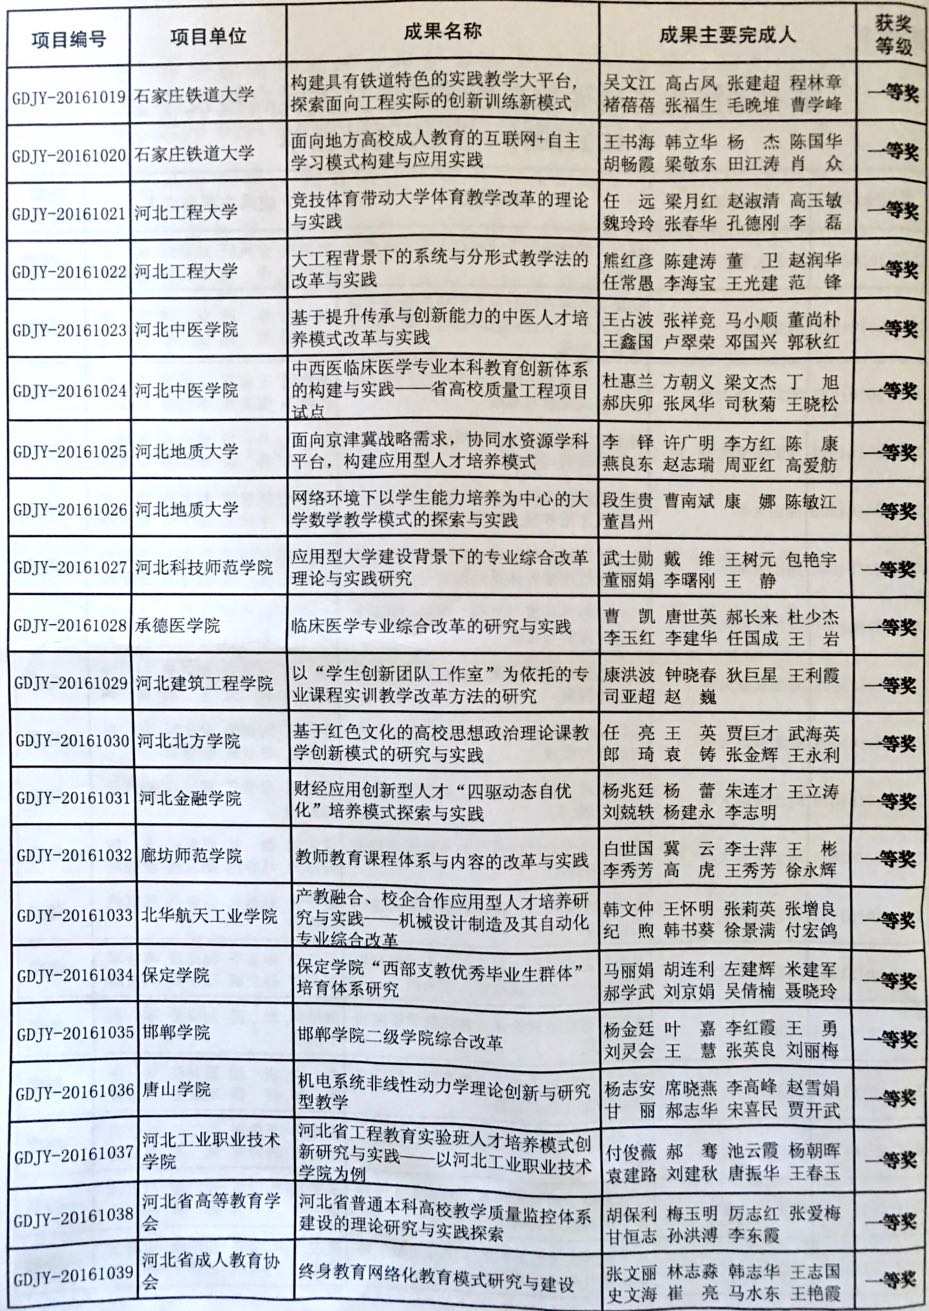 项目编号 项目单位 成果名称 成果主要完成人 获奖
等级
GDJY-20161019 石家庄铁道大学 构建具有铁道特色的实践教学大平台，
探索面向工程实际的创新训练新模式 吴文江 高占凤 张建超 程林章
褚蓓蓓 张福生 毛晚堆 曹学峰 一等奖
GDJY-20161020 石家庄铁道大学 面向地方高校成人教育的互联网+自主
学习模式构建与应用实践 王书海 韩立华 杨 杰 陈国华
胡畅霞 梁敬东 田江涛 肖 众 一等奖
GDJY-20161021 河北工程大学 竞技体育带动大学体育教学改革的理论
与实践 任 远 梁月红 赵淑清 高玉敏
魏玲玲 张春华 孔德刚 李 磊 一等奖
GDJY-20161022 河北工程大学 大工程背景下的系统与分形式教学法的
改革与实践 熊红彦 陈建涛 董 卫 赵润华
任常愚 李海宝 王光建 范 锋 一等奖
GDJY-20161023 河北中医学院 基于提升传承与创新能力的中医人才培
养模式改革与实践 王占波 张祥竞 马小顺 董尚朴
王鑫国 卢翠荣 邓国兴 郭秋红 一等奖
GDJY-20161024 河北中医学院 中西医临床医学专业本科教育创新体系
的构建与实践——省高校质量工程项目
试点 杜惠兰 方朝义 梁文杰 丁 旭
郝庆卯 张凤华 司秋菊 王晓松 一等奖
GDJY-20161025 河北地质大学 面向京津冀战略需求，协同水资源学科
平台，构建应用型人才培养模式 李 铎 许广明 李方红 陈 康
燕良东 赵志瑞 周亚红 高爱舫 一等奖
GDJY-20161026 河北地质大学 网络环境下以学生能力培养为中心的大
学数学教学模式的探索与实践 段生贵 曹南斌 康 娜 陈敏江
董昌州 一等奖
GDJY-20161027 河北科技师范学院 应用型大学建设背景下的专业综合改革
理论与实践研究 武士勋 戴 维 王树元 包艳宇
董丽娟 李曙刚 王 静 一等奖
GDJY-20161028 承德医学院 临床医学专业综合改革的研究与实践 曹 凯 唐世英 郝长来 杜少杰
李玉红 李建华 任国成 王 岩 一等奖
GDJY-20161029 河北建筑工程学院 以“学生创新团队工作室”为依托的专
业课程实训教学改革方法的研究 康洪波 钟晓春 狄巨星 王利霞
司亚超 赵 巍 一等奖
GDJY-20161030 河北北方学院 基于红色文化的高校思想政治理论课教
学创新模式的研究与实践 任 亮 王 英 贾巨才 武海英
郎 琦 袁 铸 张金辉 王永利 一等奖
GDJY-20161031 河北金融学院 财经应用创新型人才“四驱动态自优
化”培养模式探索与实践 杨兆廷 杨 蕾 朱连才 王立涛
刘兢轶 杨建永 李志明 一等奖
GDJY-20161032 廊坊师范学院 教师教育课程体系与内容的改革与实践 白世国 冀 云 李士萍 王 彬
李秀芳 高 虎 王秀芳 徐永辉 一等奖
GDJY-20161033 北华航天工业学院 产教融合、校企合作应用型人才培养研
究与实践——机械设计制造及其自动化
专业综合改革 韩文仲 王怀明 张莉英 张增良
纪 煦 韩书葵 徐景满 付宏鸽 一等奖
GDJY-20161034 保定学院 保定学院“西部支教优秀毕业生群体”
培育体系研究 马丽娟 胡连利 左建辉 米建军
郝学武 刘京娟 吴倩楠 聂晓玲 一等奖
GDJY-20161035 邯郸学院 邯郸学院二级学院综合改革 杨金廷 叶 嘉 李红霞 王 勇
刘灵会 王 慧 张英良 刘丽梅 一等奖
GDJY-20161036 唐山学院 机电系统非线性动力学理论创新与研究
型教学 杨志安 席晓燕 李高峰 赵雪娟
甘 丽 郝志华 宋喜民 贾开武 一等奖
GDJY-20161037 河北工业职业技术
学院 河北省工程教育实验班人才培养模式创
新研究与实践——以河北工业职业技术
学院为例 付俊薇 郝 骞 池云霞 杨朝晖
袁建路 刘建秋 唐振华 王春玉 一等奖
GDJY-20161038 河北省高等教育学
会 河北省普通本科高校教学质量监控体系
建设的理论研究与实践探索 胡保利 梅玉明 厉志红 张爱梅
甘恒志 孙洪溥 李东霞 一等奖
GDJY-20161039 河北省成人教育协
会 终身教育网络化教育模式研究与建设 张文丽 林志淼 韩志华 王志国
史文海 崔 亮 马水东 王艳霞 一等奖